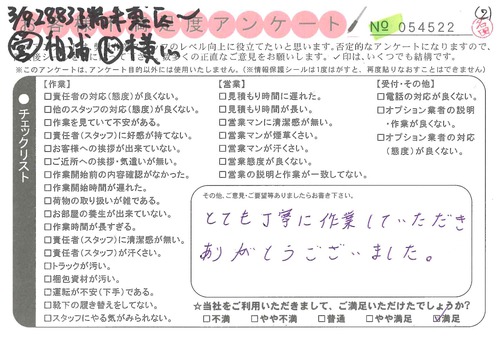 満足度アンケート
No 054522
のレベル向上に役立てたいと思います。否定的なアンケートになりますので、
正直なご意見をお願いします。✓印は、いくつでも結構です。
※このアンケートは、アンケート目的以外には使用いたしません。(※情報保護シールは1度はがすと、再度貼りなおすことができません。)
●チェックリスト
【作業】
□責任者の対応(態度)が良くない。
□他のスタッフの対応(態度)が良くない。
□作業を見ていて不安がある。
□責任者(スタッフ)に好感が持てない。
□お客様への挨拶が出来ていない。
□ご近所への挨拶・気遣いが無い。
□作業開始前の内容確認がなかった。
□作業開始時間が遅れた。
□荷物の取り扱いが雑である。
□お部屋の養生が出来ていない。
□作業時間が長すぎる。
□責任者(スタッフ)に清潔感が無い。
□責任者(スタッフ)が汗くさい。
□トラックが汚い。
□梱包資材が汚い。
□運転が不安(下手)である。
□靴下の履き替えをしてない。
□スタッフにやる気がみられない。
【営業】
□見積もり時間に遅れた。
□見積もり時間が長い。
□営業マンに清潔感が無い。
□営業マンが煙草くさい。
□営業マンが汗くさい。
□営業態度が良くない。
□営業の説明と作業が一致してない。
【受付・その他】
□電話の対応が良くない。
□オプション業者の説明
・作業が良くない。
□オプション業者の対応
(態度)が良くない。
その他、ご意見・ご要望等ありましたらお書き下さい。
とても丁寧に作業していただき
ありがとうございました。
☆当社をご利用いただきまして、ご満足いただけたでしょうか?
□不満 □やや不満 □普通 □やや満足 ☑満足